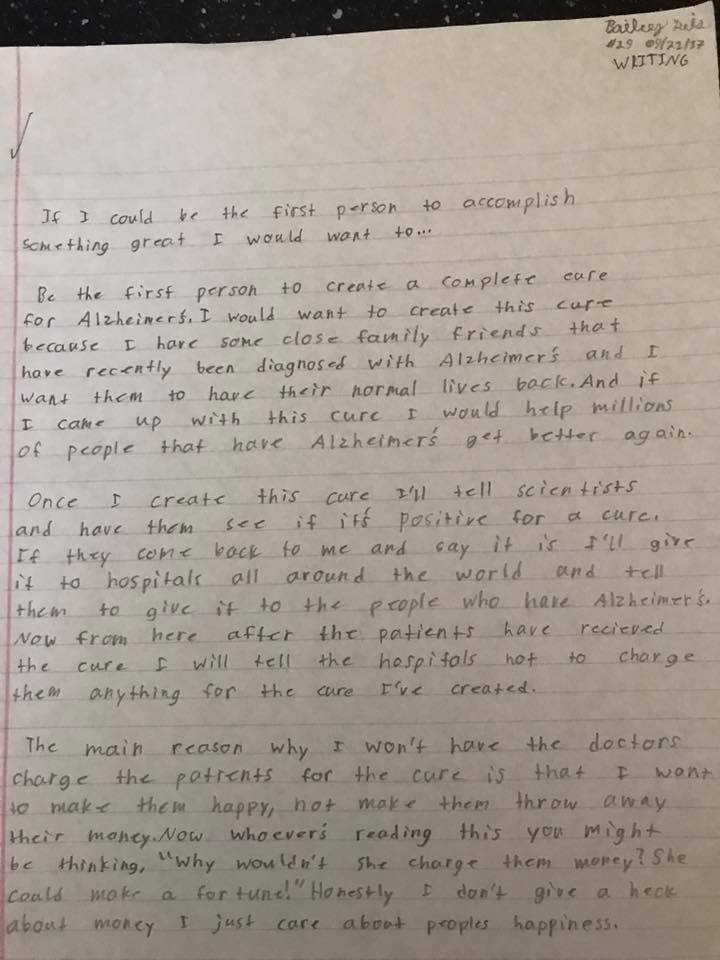 Bailey
#29 09/22/17
WRITING
If I could be the first person to accomplish
something great I would want to...
Be the first person to create a complete cure
for Alzheimer's. I would want to create this cure
because I have some close family friends that
have recently been diagnosed with Alzheimer's and I
want them to have their normal lives back. And if
I came up with this cure I would help millions
of people that have Alzheimer's get better again.
Once I create this cure I'll tell scientists
and have them see if it's positive for a cure.
If they come back to me and say it is I'll give
it to hospitals all around the world and tell
them to give it to the people who have Alzheimer's.
Now from here after the patients have recieved
the cure I will tell the hospitals not to charge
them anything for the cure I've created.
The main reason why I won't have the doctors
charge the patients for the cure is that I want
to make them happy, not make them throw away
their money. Now whoever's reading this you might
be thinking, "Why wouldn't she charge them money? She
could make a fortune!" Honestly I don't give a heck
about money I just care about peoples happiness.